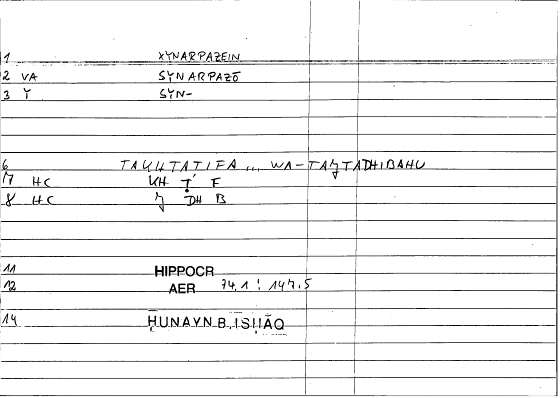 1 XYNARPAZEIN
2 VA SYNARPAZŌ
3 Y SYN-
6 TAKHTATIFA ... WA-TAǦTADHIBAHU
7 HC KH Ṭ F
8 HC Ǧ DH B
11 HIPPOCR
12 AER 74.1 : 147.5
14 ḤUNAYN B. ISḤĀQ